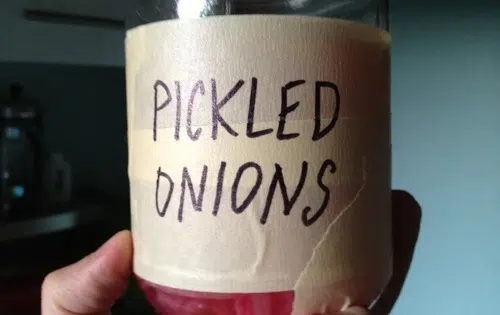 PICKLED
ONIONS